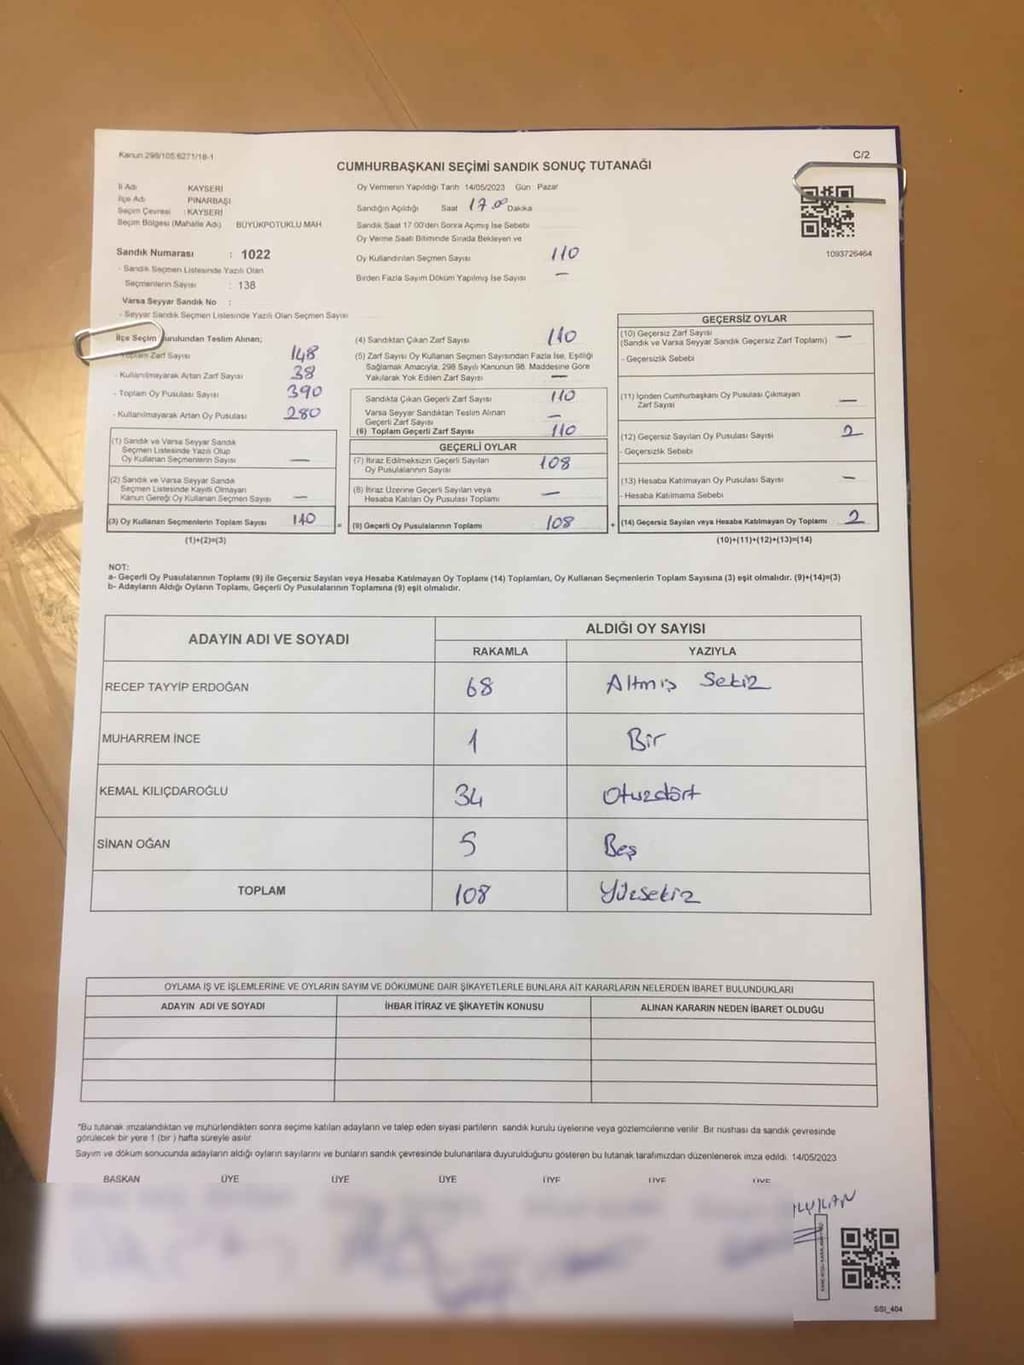 Kanun 298/105 6271/18-1
CUMHURBAŞKANI SEÇİMİ SANDIK SONUÇ TUTANAĞI
C/2
İl Adı KAYSERİ
İlçe Adı PINARBAŞI
Seçim Çevresi : KAYSERİ
Seçim Bölgesi (Mahalle Adı) BÜYÜKPOTUKLU MAH.
Oy Vermenin Yapıldığı Tarih 14/05/2023 Gün Pazar
Sandığın Açıldığı Saat 17.00 Dakika
Sandık Saat 17.00'den Sonra Açılmış İse Sebebi
Oy Verme Saati Bitiminde Sırada Bekleyen ve
Oy Kullandırılan Seçmen Sayısı 110
Birden Fazla Sayım Döküm Yapılmış İse Sayısı —
1093726464
Sandık Numarası : 1022
- Sandık Seçmen Listesinde Yazılı Olan
Seçmenlerin Sayısı : 138
Varsa Seyyar Sandık No :
- Seyyar Sandık Seçmen Listesinde Yazılı Olan Seçmen Sayısı
İlçe Seçim Kurulundan Teslim Alınan;
Toplam Zarf Sayısı 148
- Kullanılmayarak Artan Zarf Sayısı 38
- Toplam Oy Pusulası Sayısı 390
- Kullanılmayarak Artan Oy Pusulası 280
(1) Sandık ve Varsa Seyyar Sandık
Seçmen Listesinde Yazılı Olup
Oy Kullanan Seçmenlerin Sayısı —
(2) Sandık ve Varsa Seyyar Sandık
Seçmen Listesinde Kayıtlı Olmayan
Kanun Gereği Oy Kullanan Seçmen Sayısı —
(3) Oy Kullanan Seçmenlerin Toplam Sayısı 110 =
(1)+(2)=(3)
(4) Sandıktan Çıkan Zarf Sayısı 110
(5) Zarf Sayısı Oy Kullanan Seçmen Sayısından Fazla İse, Eşitliği
Sağlamak Amacıyla, 298 Sayılı Kanunun 98. Maddesine Göre
Yakılarak Yok Edilen Zarf Sayısı —
Sandıkta Çıkan Geçerli Zarf Sayısı 110
Varsa Seyyar Sandıktan Teslim Alınan
Geçerli Zarf Sayısı —
(6) Toplam Geçerli Zarf Sayısı 110
GEÇERLİ OYLAR
(7) İtiraz Edilmeksizin Geçerli Sayılan
Oy Pusulalarının Sayısı 108
(8) İtiraz Üzerine Geçerli Sayılan veya
Hesaba Katılan Oy Pusulası Toplamı —
(9) Geçerli Oy Pusulalarının Toplamı 108 +
GEÇERSİZ OYLAR
(10) Geçersiz Zarf Sayısı —
(Sandık ve Varsa Seyyar Sandık Geçersiz Zarf Toplamı)
- Geçersizlik Sebebi
(11) İçinden Cumhurbaşkanı Oy Pusulası Çıkmayan
Zarf Sayısı —
(12) Geçersiz Sayılan Oy Pusulası Sayısı 2
- Geçersizlik Sebebi
(13) Hesaba Katılmayan Oy Pusulası Sayısı —
- Hesaba Katılmama Sebebi
(14) Geçersiz Sayılan veya Hesaba Katılmayan Oy Toplamı 2
(10)+(11)+(12)+(13)=(14)
NOT:
a- Geçerli Oy Pusulalarının Toplamı (9) ile Geçersiz Sayılan veya Hesaba Katılmayan Oy Toplamı (14) Toplamları, Oy Kullanan Seçmenlerin Toplam Sayısına (3) eşit olmalıdır. (9)+(14)=(3)
b- Adayların Aldığı Oyların Toplamı, Geçerli Oy Pusulalarının Toplamına (9) eşit olmalıdır.
ADAYIN ADI VE SOYADI
ALDIĞI OY SAYISI
RAKAMLA YAZIYLA
RECEP TAYYİP ERDOĞAN 68 Altmış Sekiz
MUHARREM İNCE 1 Bir
KEMAL KILIÇDAROĞLU 34 Otuzdört
SİNAN OĞAN 5 Beş
TOPLAM 108 Yüzsekiz
OYLAMA İŞ VE İŞLEMLERİNE VE OYLARIN SAYIM VE DÖKÜMÜNE DAİR ŞİKAYETLERLE BUNLARA AİT KARARLARIN NELERDEN İBARET BULUNDUKLARI
ADAYIN ADI VE SOYADI İHBAR İTİRAZ VE ŞİKAYETİN KONUSU ALINAN KARARIN NEDEN İBARET OLDUĞU
"Bu tutanak imzalandıktan ve mühürlendikten sonra seçime katılan adayların ve talep eden siyasi partilerin sandık kurulu üyelerine veya gözlemcilerine verilir. Bir nüshası da sandık çevresinde
görülecek bir yere 1 (bir) hafta süreyle asılır.
Sayım ve döküm sonucunda adayların aldığı oyların sayılarını ve bunların sandık çevresinde bulunanlara duyurulduğunu gösteren bu tutanak tarafımızdan düzenlenerek imza edildi. 14/05/2023
BAŞKAN ÜYE ÜYE ÜYE ÜYE ÜYE ÜYE
SSI_404